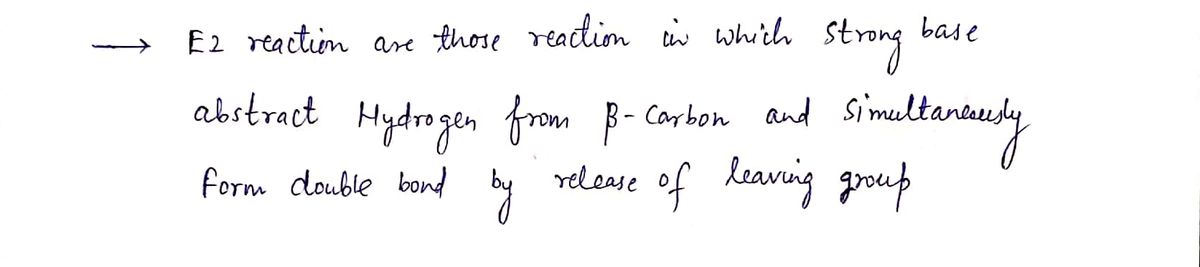 → E2 reaction are those reaction in which strong base
abstract Hydrogen from β-Carbon and simultaneously
form double bond by release of leaving group